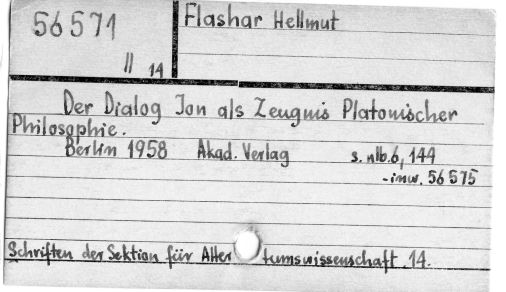 56571
Flashar Hellmut
II 14
Der Dialog Jon als Zeugnis Platonischer
Philosophie.
Berlin 1958 Akad. Verlag s. nlb. 6, 144
-inw. 56575
Schriften der Sektion für Alter tumswissenschaft. 14.